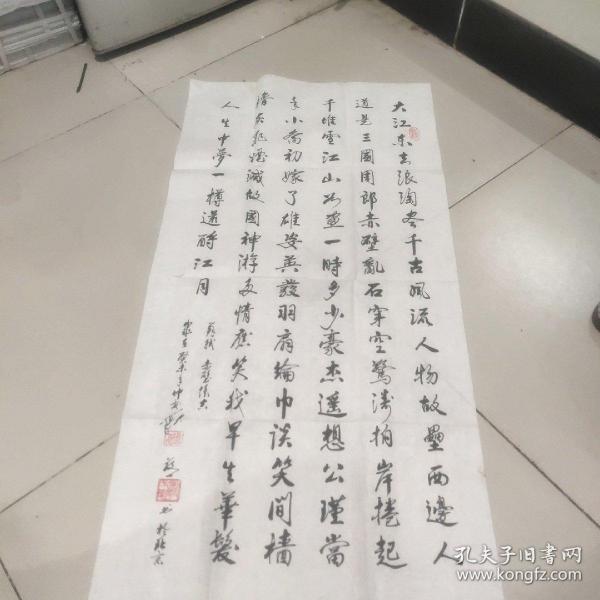 大江东去浪淘尽千古風流人物故壘西邊人
道是三國周郎赤壁亂石穿空驚濤拍岸捲起
千堆雪江山如畫一時多少豪杰遥想公瑾當
年小喬初嫁了雄姿英發羽扇綸巾談笑間檣
櫓灰飛煙滅故國神游多情應笑我早生華髮
人生如夢一樽還酹江月
蘇軾 赤壁懷古
歲在癸未年仲
書於北京
孔夫子旧书网
www.kongfz.com